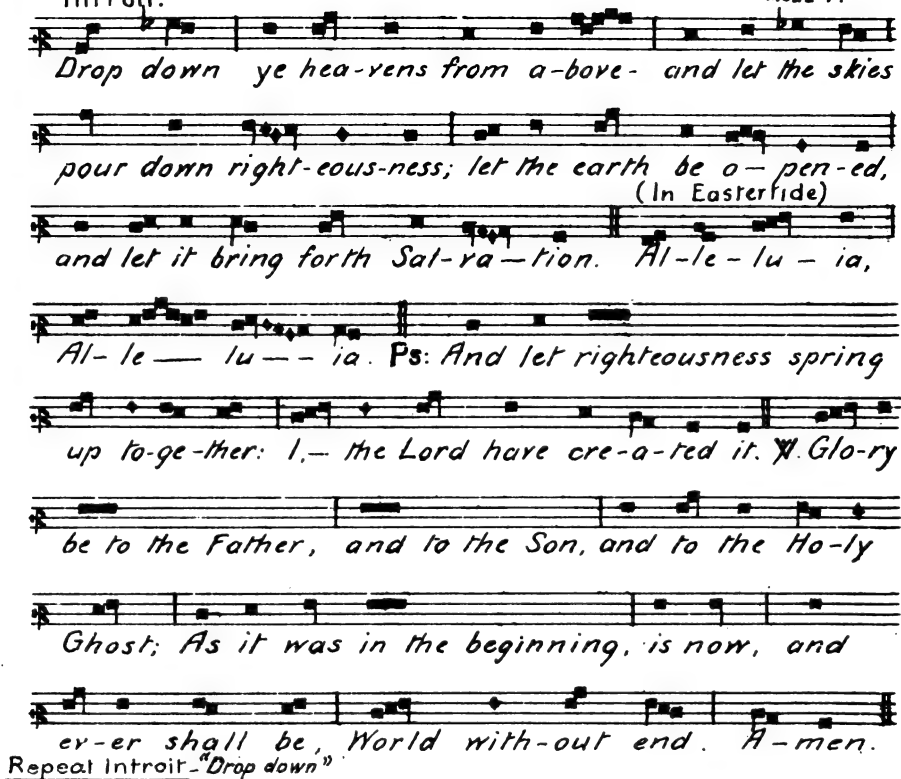 Introit.
Drop down ye hea-vens from a-bove- and let the skies
pour down right-eous-ness; let the earth be o-pen-ed,
(In Eastertide)
and let it bring forth Sal-va-tion. Al-le-lu-ia,
Al-le— lu--ia. Ps: And let righteousness spring
up to-ge-ther: I,- the Lord have cre-a-ted it. ℣. Glo-ry
be to the Father, and to the Son, and to the Ho-ly
Ghost; As it was in the beginning, is now, and
ev-er shall be, World with-out end. A-men.
Repeat Introit-"Drop down"